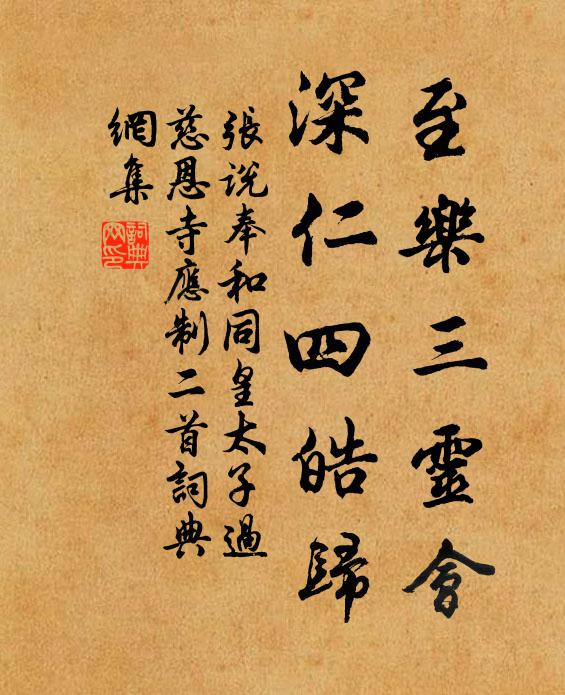 至樂三靈會
深仁四皓歸
張说奉和同皇太子過
慈恩寺應制二首詞典
網集
詞典
网印